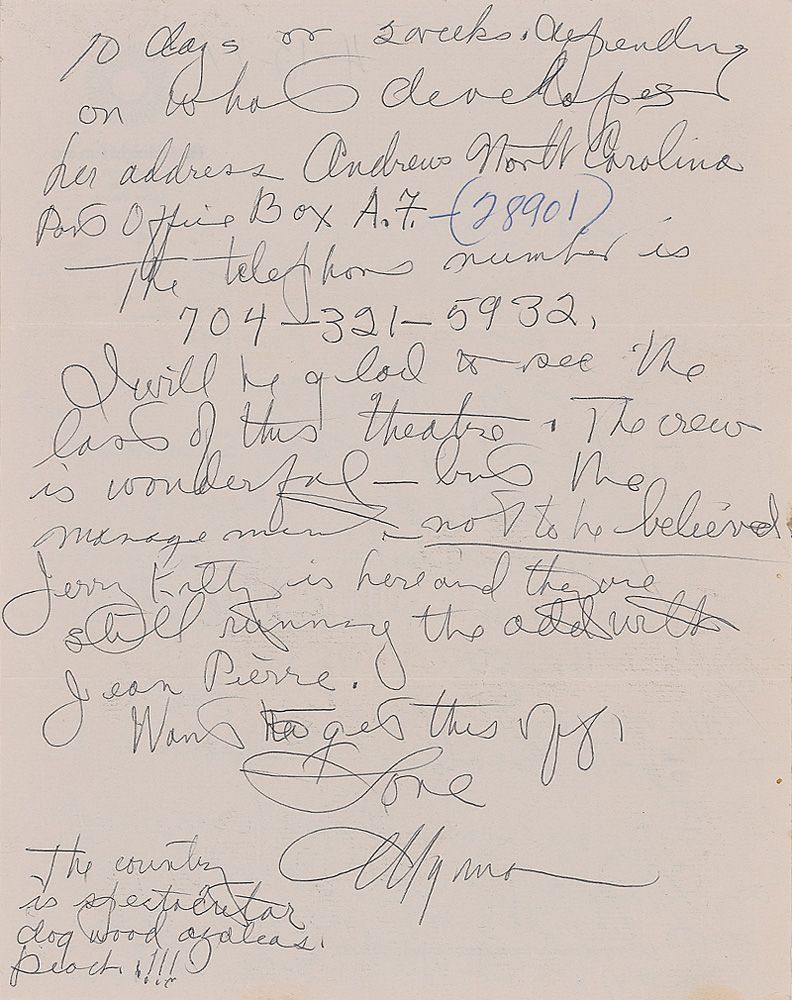 10 days or 2 weeks. depending
on what developes
her address Andrews North Carolina
Post Office Box A.F. - (28901)
The telephone number is
704-321-5932.
I will be glad to see the
last of this theatre. The crew
is wonderful - but the
management - not to be believed.
Jerry Kitty is here and they are
still running the add with
Jean Pierre.
Want to get this off,
Love
Myrna
The country
is spectacular
dog wood azaleas.
peach.!!!